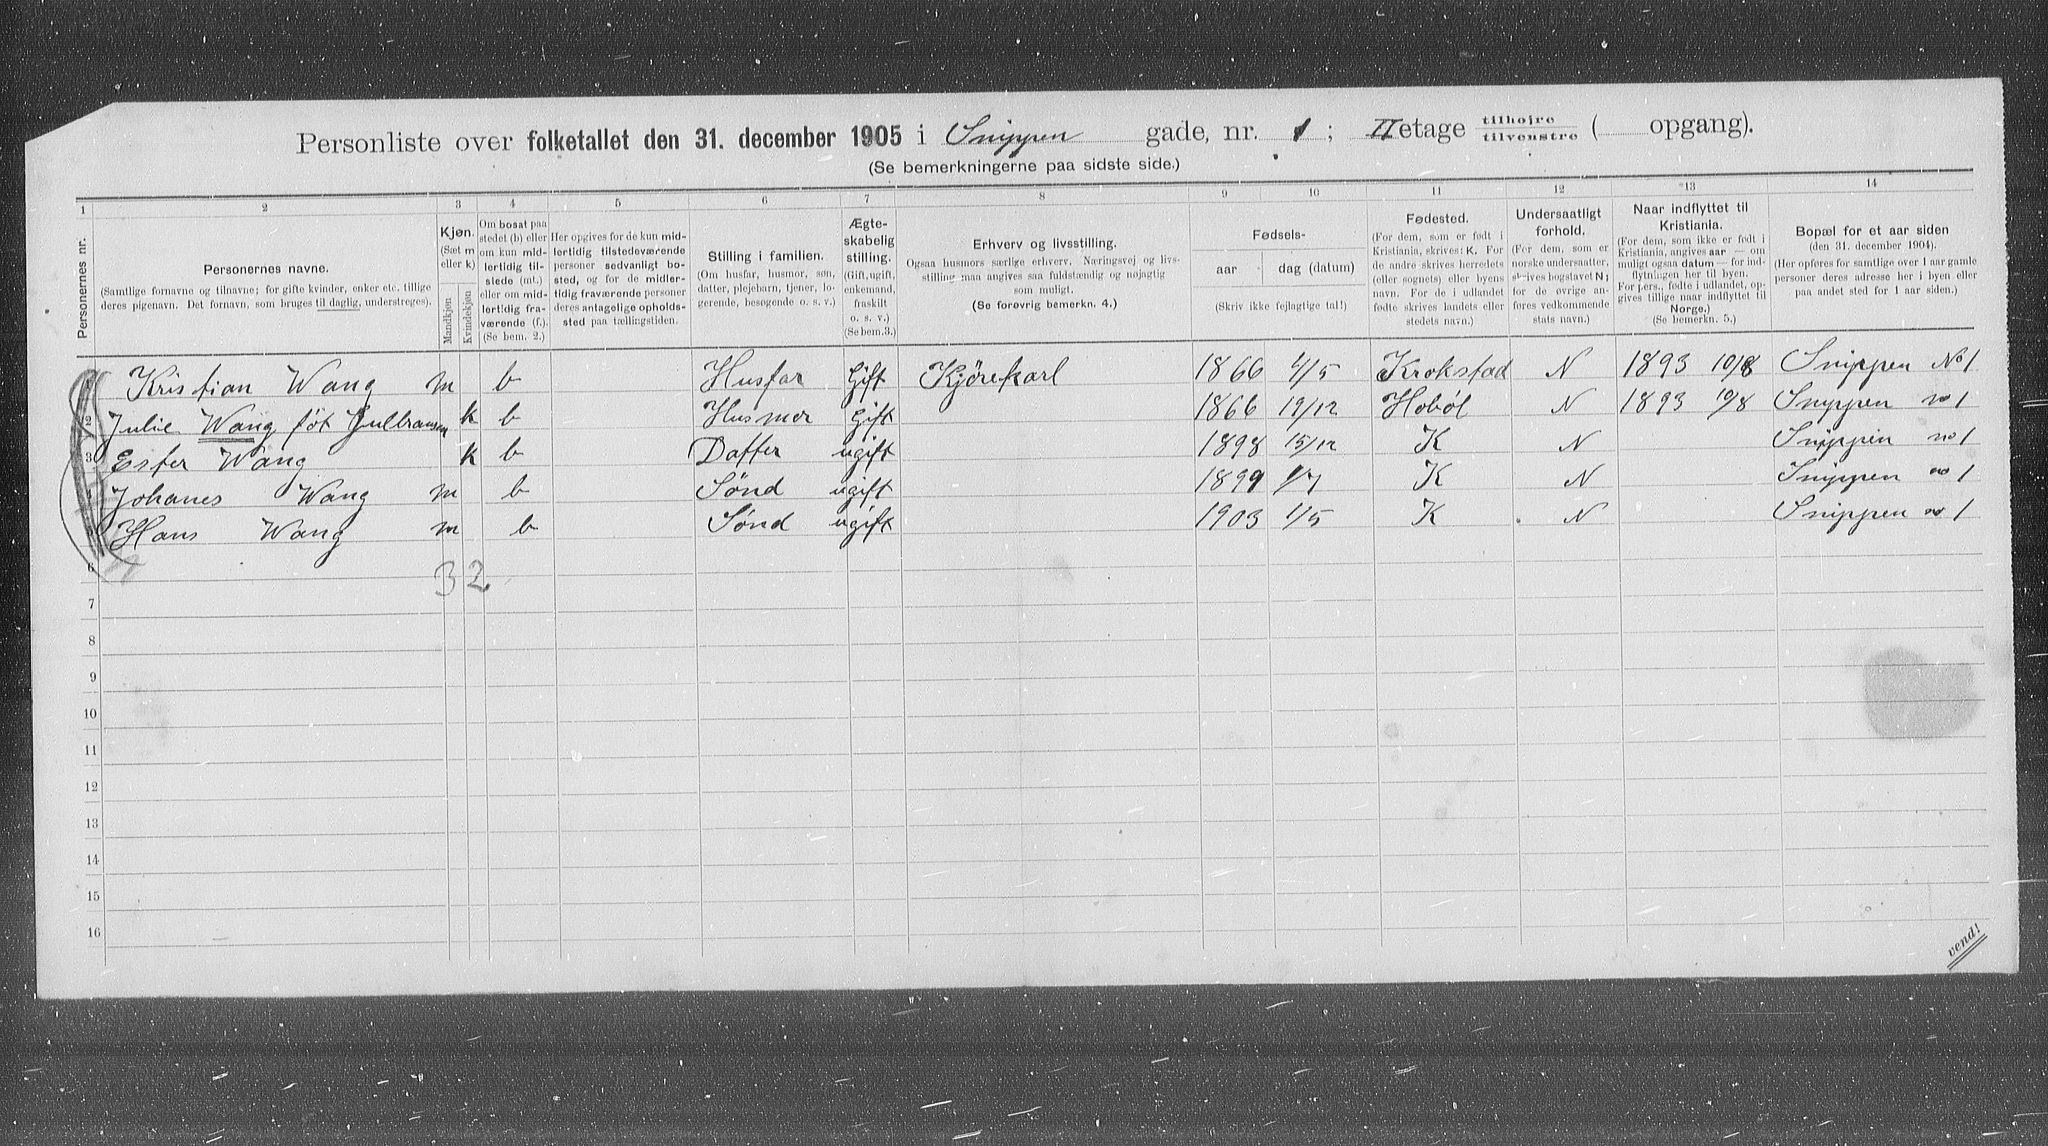 Personliste over folketallet den 31. december 1905 i Snippen gade, nr. 1; II etage tilhøjre tilvenstre ( opgang).
(Se bemerkningerne paa sidste side.)
1 2 3 4 5 6 7 8 9 10 11 12 13 14
Personernes nr.
Personernes navne.
(Samtlige fornavne og tilnavne; for gifte kvinder, enker etc. tillige deres pigenavn. Det fornavn, som bruges til daglig, understreges).
Kjøn.
(Sæt m eller k)
Mandkjøn
Kvindekjøn
Om bosat paa stedet (b) eller om kun midlertidig tilstede (mt.) eller om midlertidig fraværende (f.) (Se bem. 2.)
Her opgives for de kun midlertidig tilstedeværende personer sedvanligt bosted, og for de midlertidig fraværende personer deres antagelige opholdssted paa tællingstiden.
Stilling i familien.
(Om husfar, husmor, søn, datter, plejebarn, tjener, logerende, besøgende o. s. v.)
Ægteskabelig stilling.
(Gift, ugift, enkemand, fraskilt o. s. v.) (Se bem. 3.)
Erhverv og livsstilling.
Ogsaa husmors særlige erhverv. Næringsvej og livsstilling maa angives saa fuldstændig og nøjagtig som muligt.
(Se forøvrig bemerkn. 4.)
Fødsels-
aar
dag (datum)
(Skriv ikke fejlagtige tal!)
Fødested.
(For dem, som er født i Kristiania, skrives: K. For de andre skrives herredets (eller sognets) eller byens navn. For de i udlandet fødte skrives landets eller stedets navn.)
Undersaatligt forhold.
(For dem, som er norske undersaatter, skrives bogstavet N; for de øvrige anføres vedkommende stats navn.)
Naar indflyttet til Kristiania.
(For dem, som ikke er født i Kristiania, angives aar — om muligt ogsaa datum — for indflytningen her til byen. For pers., fødte i udlandet, opgives tillige naar indflyttet til Norge.)
(Se bemerkn. 5.)
Bopæl for et aar siden
(den 31. december 1904).
(Her opføres for samtlige over 1 aar gamle personer deres adresse her i byen eller paa andet sted for 1 aar siden.)
1 Kristian Wang m b Husfar Gift Kjørekarl 1866 4/5 Krokstad N 1893 10/8 Snippen No 1
2 Julie Wang föt Gulbransen k b Husmor Gift 1866 19/12 Hobøl N 1893 10/8 Snyppen no 1
3 Ester Wang k b Datter ugift 1898 15/12 K N Snippin no 1
4 Johanes Wang m b Sønd ugift 1899 1/7 K N Snippen no 1
5 Hans Wang m b Sønd ugift 1903 1/5 K N Snippen no 1
6 3 2
7
8
9
10
11
12
13
14
15
16
vend!